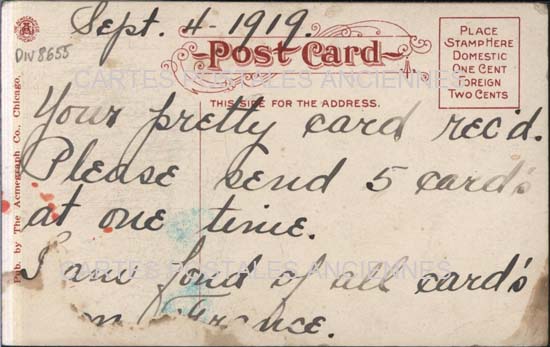 Sept. 4-1919.
DIV 8655
Post Card
PLACE
STAMP HERE
DOMESTIC
ONE CENT
FOREIGN
TWO CENTS
CARTES POSTALES ANCIENNES
THIS SIDE FOR THE ADDRESS.
Your pretty card rec'd.
Please send 5 card's
at one time.
I am fond of all card's
CARTES POSTALES ANCIENNES
France.
Pub. by The Acmegraph Co., Chicago.